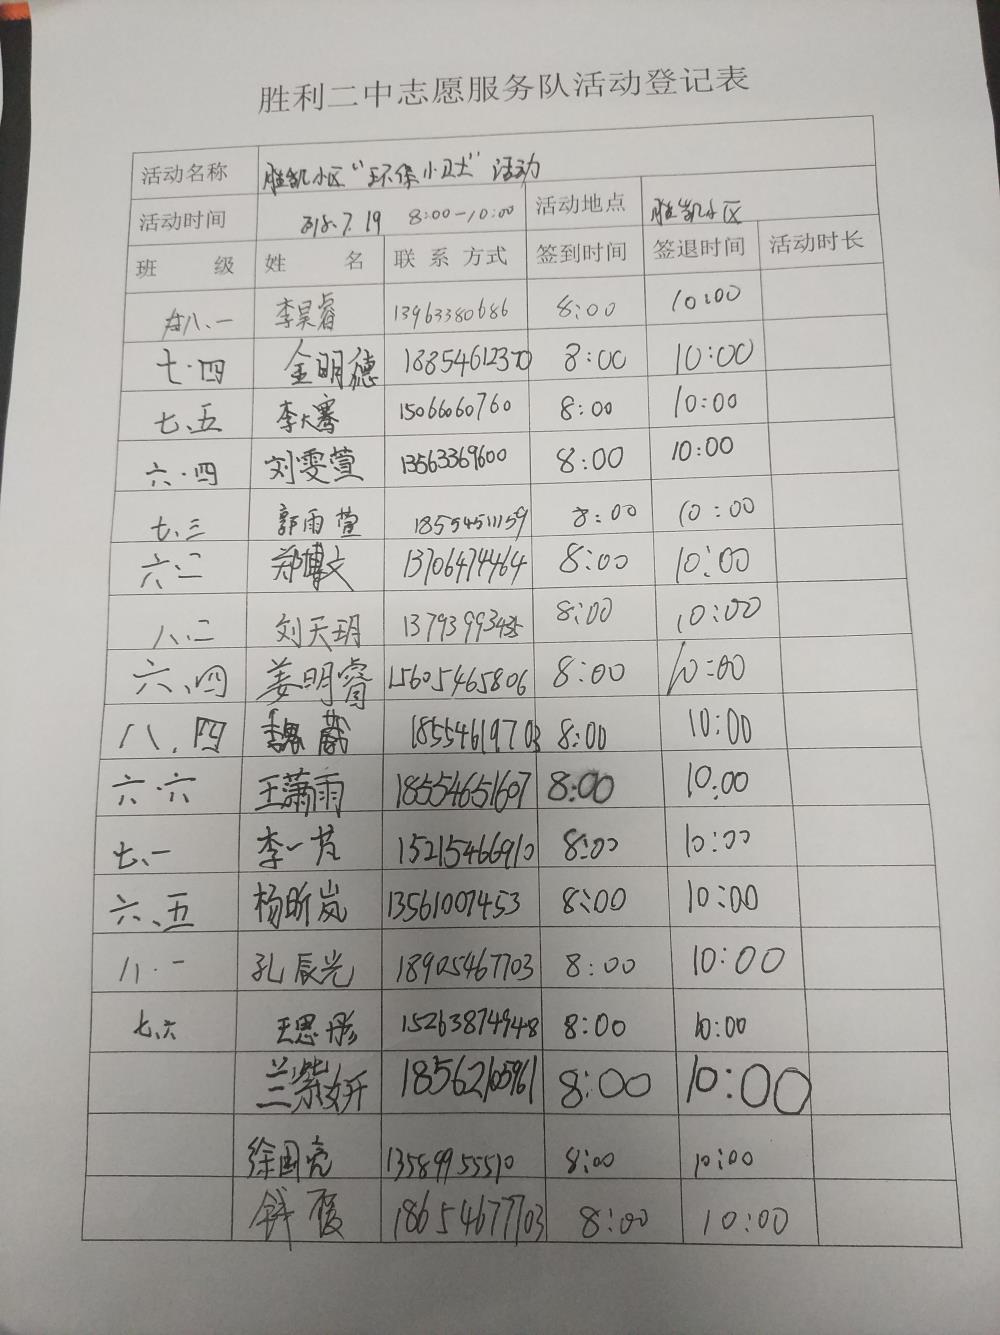 胜利二中志愿服务队活动登记表
活动名称 胜凯小区“环保小卫士”活动
活动时间 2018.7.19 8:00-10:00 活动地点 胜凯小区
班 级 姓 名 联 系 方式 签到时间 签退时间 活动时长
八.一 李昊睿 13963380686 8:00 10:00
七.四 金明德 18854612370 8:00 10:00
七、五 李大骞 15066060760 8:00 10:00
六.四 刘雯萱 13563369600 8:00 10:00
七、三 郭雨萱 18554511159 8:00 10:00
六.二 郑博文 13706474464 8:00 10:00
八、二 刘天玥 8:00 10:00
六、四 姜明睿 15605465806 8:00 10:00
八.四 魏葳 18554619703 8:00 10:00
六.六 王萧雨 18554651607 8:00 10:00
七、一 李一芃 15215466910 8:00 10:00
六、五 杨昕岚 13561007453 8:00 10:00
八.一 孔辰光 18905467703 8:00 10:00
七、六 王思彤 15263874948 8:00 10:00
兰紫妍 18562105961 8:00 10:00
徐国亮 13589955510 8:00 10:00
18654677703 8:00 10:00